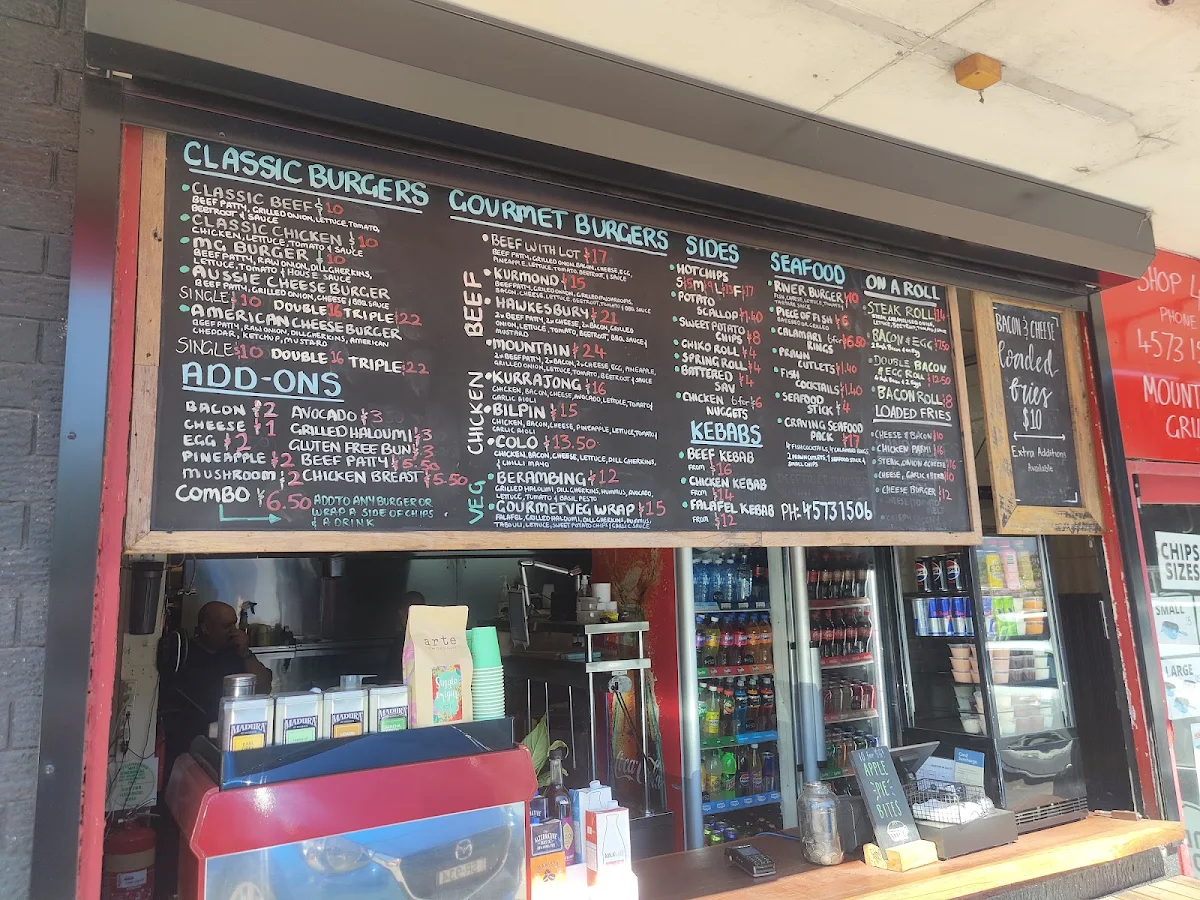 CLASSIC BURGERS
CLASSIC BEEF $10
BEEF PATTY, GRILLED ONION, LETTUCE, TOMATO,
BEETROOT & SAUCE
CLASSIC CHICKEN $10
CHICKEN, LETTUCE, TOMATO & SAUCE
MG BURGER $10
BEEF PATTY, RAW ONION, DILL GHERKINS,
LETTUCE, TOMATO & HOUSE SAUCE
AUSSIE CHEESE BURGER
BEEF PATTY, GRILLED ONION, CHEESE & BBQ SAUCE
SINGLE $10 DOUBLE 16 TRIPLE $22
AMERICAN CHEESE BURGER
BEEF PATTY, RAW ONION, DILL GHERKINS, AMERICAN
CHEDDAR, KETCHUP, MUSTARD
SINGLE $10 DOUBLE 16 TRIPLE $22
ADD-ONS
BACON $2 AVOCADO $3
CHEESE $1 GRILLED HALOUMI $3
EGG $2 GLUTEN FREE BUN $3
PINEAPPLE $2 BEEF PATTY $5.50
MUSHROOM $2 CHICKEN BREAST $5.50
COMBO $6.50 ADD TO ANY BURGER OR
WRAP A SIDE OF CHIPS
& A DRINK
GOURMET BURGERS
BEEF
BEEF WITH LOT $17
BEEF PATTY, GRILLED ONION, BACON, CHEESE, EGG,
PINEAPPLE, LETTUCE, TOMATO, BEETROOT & SAUCE
KURMOND $15
BEEF PATTY, GRILLED ONION, GRILLED MUSHROOMS,
BACON, CHEESE, LETTUCE, BEETROOT, TOMATO & SAUCE
HAWKESBURY $21
2x BEEF PATTY, 2x CHEESE, 2x BACON, GRILLED
ONION, LETTUCE, TOMATO, BEETROOT, BBQ SAUCE &
MUSTARD
MOUNTAIN $24
2x BEEF PATTY, 2x BACON, 2x CHEESE, EGG, PINEAPPLE,
GRILLED ONION, LETTUCE, TOMATO, BEETROOT & SAUCE
CHICKEN
KURRAJONG $16
CHICKEN, BACON, CHEESE, AVOCADO, LETTUCE, TOMATO &
GARLIC AIOLI
BILPIN $15
CHICKEN, BACON, CHEESE, PINEAPPLE, LETTUCE, TOMATO &
GARLIC AIOLI
COLO $13.50
CHICKEN, BACON, CHEESE, LETTUCE, DILL GHERKINS,
& CHILLI MAYO
VEG
BERAMBING $12
GRILLED HALOUMI, DILL GHERKINS, HUMMUS, AVOCADO,
LETTUCE, TOMATO & BASIL PESTO
GOURMET VEG WRAP $15
FALAFEL, GRILLED HALOUMI, DILL GHERKINS, HUMMUS,
TABOULI, LETTUCE, SWEET POTATO CHIPS & GARLIC SAUCE
SIDES
HOT CHIPS
POTATO
SCALLOP $1.40
SWEET POTATO
CHIPS $8
CHIKO ROLL $4
SPRING ROLL $4
BATTERED $4
SAV
CHICKEN 6 for $6
NUGGETS
KEBABS
BEEF KEBAB
FROM $16
CHICKEN KEBAB
FROM $14
FALAFEL KEBAB
FROM $12
SEAFOOD
RIVER BURGER $10
PIECE OF FISH $6
CALAMARI 6 for $6.50
RINGS
PRAWN
CUTLETS $1.40
FISH
COCKTAILS $1.40
SEAFOOD
STICK $4
CRAVING SEAFOOD
PACK $17
PH: 45731506
ON A ROLL
STEAK ROLL $14
BACON & EGG $7.50
DOUBLE BACON
& EGG ROLL $12.50
BACON ROLL $8
LOADED FRIES
CHEESE & BACON $10
CHICKEN PARMI $16
CHEESE BURGER $12
BACON & CHEESE
Loaded
fries
$10
Extra Additions
Available
4573 1
MOUNT
CHIPS
SIZES
SMALL
LARGE
arte
MADURA
MADURA
MADURA
MADURA
APPLE
PIE
BITES